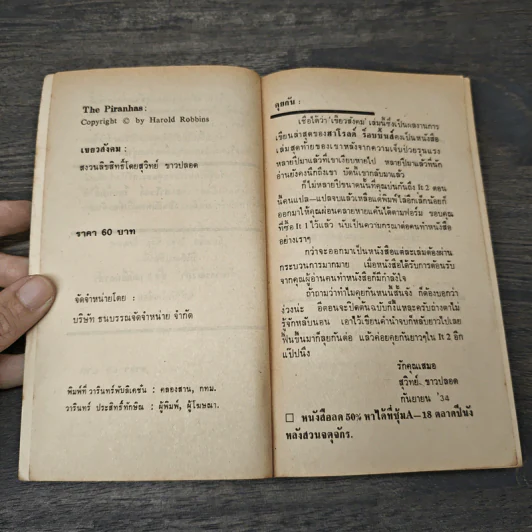 The Piranhas:
Copyright © by Harold Robbins
เขี้ยวสังคม :
สงวนลิขสิทธิ์โดยสุวิทย์ ขาวปลอด
ราคา 60 บาท
จัดจำหน่ายโดย :
บริษัท ธนบรรณจัดจำหน่าย จำกัด
พิมพ์ที่ วารินทร์พับลิเคชั่น : คลองสาน, กทม.
วารินทร์ ประสิทธิ์ทักษิณ : ผู้พิมพ์, ผู้โฆษณา.
คุยกัน :
เชื่อได้ว่า 'เขี้ยวสังคม' เล่มนี้ซึ่งเป็นผลงานการ
เขียนล่าสุดของฮาโรลด์ ร็อบบิ้นส์คงเป็นหนังสือ
เล่มสุดท้ายของเขาหลังจากความเจ็บป่วยรุนแรง
หลายปีมาแล้วที่เขาเงียบหายไป หลายปีมาแล้วที่นัก
อ่านยังคงนึกถึงเขา บัดนี้เขากลับมาแล้ว
ก็ไม่หลายปีขนาดนั้นที่คุณบ่นกันถึง It 2 ตอน
นี้ผมแปล—แปลจบแล้วเหลือแต่พิมพ์ไล่อีกเล็กน้อยก็
ออกมาให้คุณผ่อนคลายหายแค้นได้ตามฟอร์ม ขอบคุณ
ที่ซื้อ It 1 ไว้แล้ว นับเป็นความกรุณาต่อคนทำหนังสือ
อย่างเราๆ
กว่าจะออกมาเป็นหนังสือแต่ละเล่มต้องผ่าน
กระบวนการมากมาย เมื่อหนังสือได้รับการต้อนรับ
จากคุณผู้อ่านคนทำหนังสือก็มีกำลังใจ
ถ้าถามว่าทำไมคุยกันหนนี้สั้นจัง ก็ต้องบอกว่า
ง่วงน่ะ อีตอนจะปิดต้นฉบับก็งี้แหละครับถ่างตาไม่
รู้จักหลับนอน เอาไว้เขียนคำนำจบก็หลับยาวไปเลย
ฟื้นขึ้นมาก็ลุยกันต่อ แล้วค่อยคุยกันยาวๆใน It 2 อีก
แป๊ปนึง
รักคุณเสมอ
สุวิทย์ ขาวปลอด
กันยายน '34
□ หนังสือลด 50% หาได้ที่ซุ้มA—18 ตลาดปีนัง
หลังสวนจตุจักร.